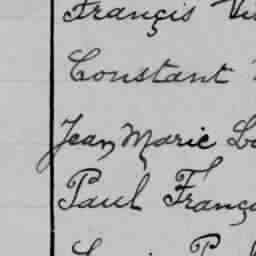 François
Constant
Jean Marie
Paul Franç